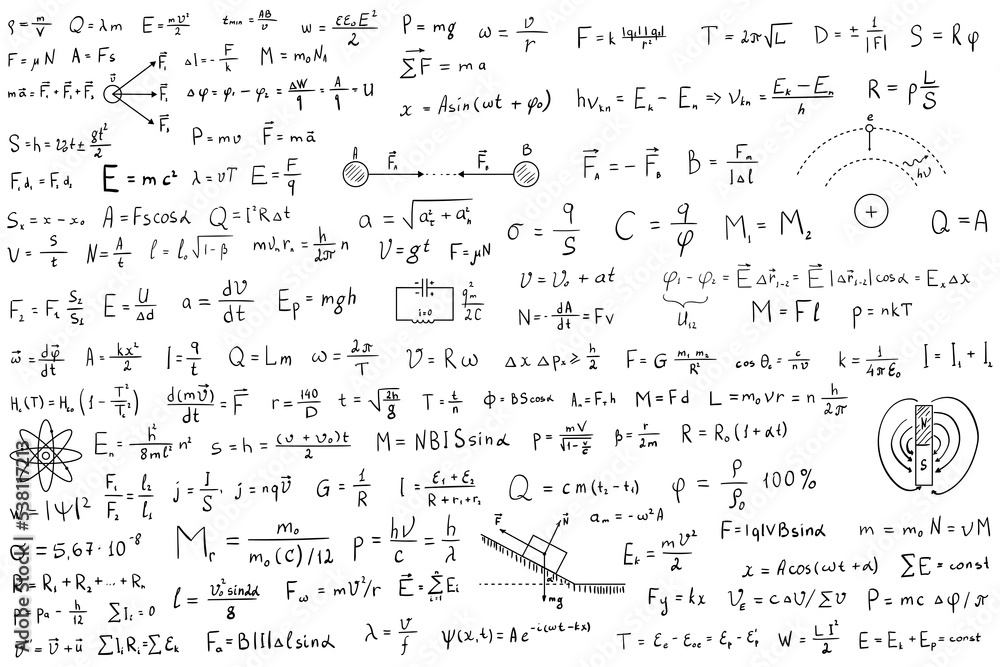 ρ = m/V Q = λm E = mv²/2 t_min = AB/v w = εε₀E²/2 P = mg ω = v/r F = k |q₁||q₂|/r² T = 2π√L D = ± 1/|F| S = Rφ
F = μN A = Fs Δl = - F/k M = m₀N_A ∑F⃗ = ma
ma⃗ = F⃗₁ + F⃗₂ + F⃗₃ v⃗ F⃗₁ F⃗₂ F⃗₃ Δφ = φ₁ - φ₂ = ΔW/q = A/q = U x = Asin(ωt + φ₀) hν_kn = E_k - E_n => ν_kn = (E_k - E_n)/h R = ρ L/S
S = h = v₀t ± gt²/2 P = mv F⃗ = ma⃗ e
A F⃗_A F⃗_B B F⃗_A = - F⃗_B B = F_m/IΔl hν
F₁d₁ = F₂d₂ E = mc² λ = vT E = F/q
Sₓ = x - x₀ A = Fscosα Q = I²RΔt a = √(a²_τ + a²_n) σ = q/S C = q/φ M₁ = M₂ + Q = A
V = s/t N = A/t l = l₀√(1-β) mvₙrₙ = h/2π n V = gt F = μN
V = V₀ + at φ₁ - φ₂ = E⃗Δr⃗₁₋₂ = E⃗|Δr⃗₁₋₂|cosα = EₓΔx
F₂ = F₁ S₂/S₁ E = U/Δd a = dV/dt E_p = mgh i=0 q²_m/2C N = - dA/dt = Fv U₁₂ M = Fl p = nkT
ω⃗ = dφ⃗/dt A = kx²/2 I = q/t Q = Lm ω = 2π/T V = Rω ΔxΔpₓ ⩾ h/2 F = G m₁m₂/R² cosθ₀ = c/nv k = 1/4πε₀ I = I₁ + I₂
H_c(T) = H_c₀(1 - T²/T²_c) d(mv⃗)/dt = F⃗ r = 140/D t = √(2h/g) T = t/n Φ = BScosα M = Fd L = m₀vr = n h/2π
Eₙ = h²/8ml² n² s = h = (v + v₀)t/2 M = NBISsinα β = r/2m R = R₀(1 + αt) N S
F₁/F₂ = l₂/l₁ j = I/S j = nqv⃗ G = 1/R I = (ε₁ + ε₂)/(R + r₁ + r₂) Q = cm(t₂ - t₁) φ = ρ/ρ₀ 100%
w = |Ψ|² aₘ = -ω²A
M_r = m₀/m₀(C)/12 p = hν/c = h/λ F⃗ N⃗ α mg E_k = mv²/2 F = |q|VBsinα m = m₀N = νM
= 5,67·10⁻⁸ x = Acos(ωt + α) ∑E = const
R = R₁ + R₂ + ... + Rₙ l = v₀²sin2α/g F_ω = mv²/r E⃗ = ∑ⁿᵢ₌₁ E⃗ᵢ F_y = kx V_E = cΔU/∑v P = mcΔφ/π
h/12 ∑Iᵢ = 0
v⃗ + u⃗ ∑IᵢRᵢ = ∑E_k F_a = B|I|Δlsinα λ = v/f ψ(x,t) = Ae^-i(ωt-kx) W = LI²/2 E = E_k + E_p = const
Adobe Stock | #538117213